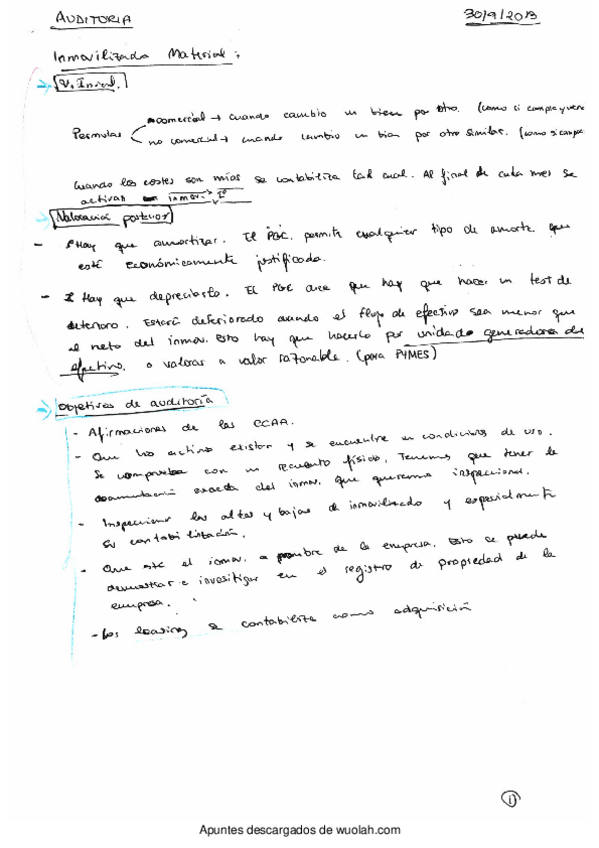 AUDITORIA 30/9/2013
Inmovilizado Material:
V. Inicial.
comercial → cuando cambio un bien por otro. (como si compra y vene
Permutas
no comercial → cuando cambio un bien por otro similar. (como si compra
Cuando los costes son míos se contabiliza tal cual. Al final de cada mes se
activan inmov.
Valoración posterior
- Hay que amortizar. El PGC. permite cualquier tipo de amort. que
esté económicamente justificada.
- Hay que depreciarlo. El PGC dice que hay que hacer un test de
deterioro. Estará deteriorado cuando el flujo de efectivo sea menor que
el neto del inmov. Esto hay que hacerlo por unidades generadoras de
efectivo. o valorar a valor razonable. (para PYMES)
Objetivos de auditoría
- Afirmaciones de las CCAA.
- Que los activos existan y se encuentre en condiciones de uso.
Se comprueba con un recuento físico. Tenemos que tener la
documentación exacta del inmov. que queramos inspeccionar.
- Inspeccionar las altas y bajas de inmovilizado y especialmente
su contabilización.
- Que esté el inmov. a nombre de la empresa. Esto se puede
demostrar e investigar en el registro de propiedad de la
empresa.
- Los leasing se contabiliza como adquisición
1
Apuntes descargados de wuolah.com